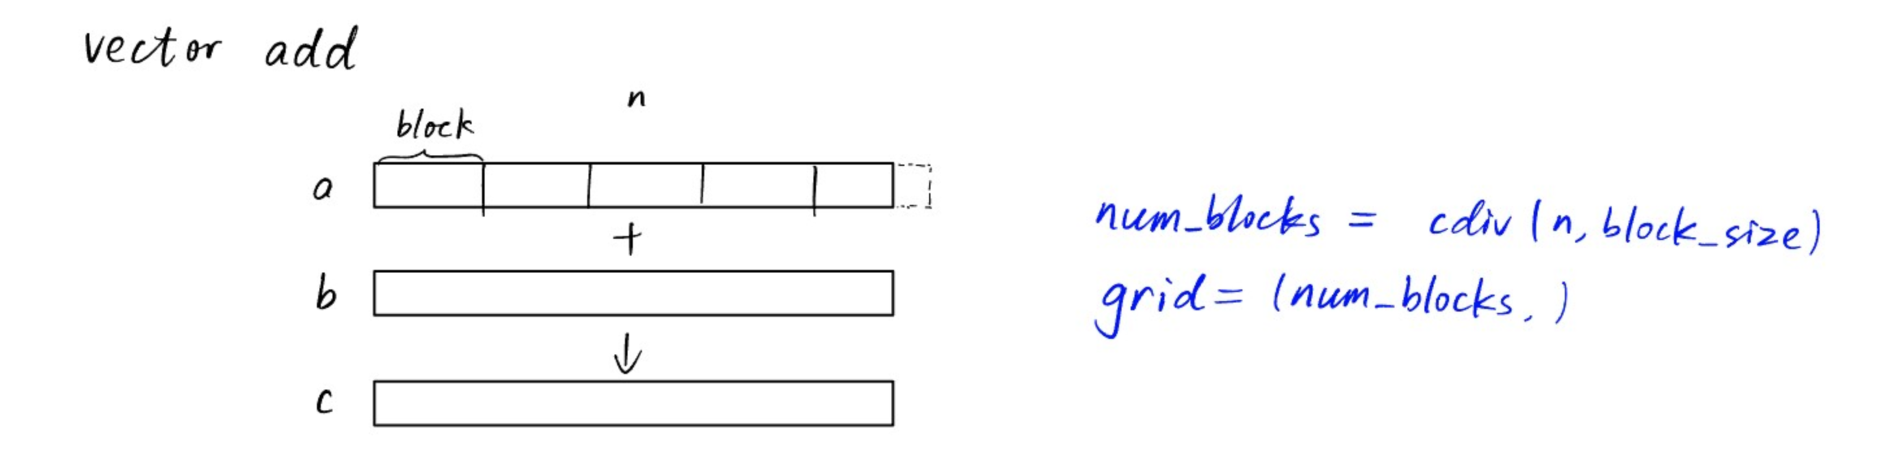 vector add
n
block
a
+
b
↓
c
num_blocks = cdiv(n, block_size)
grid = (num_blocks, )